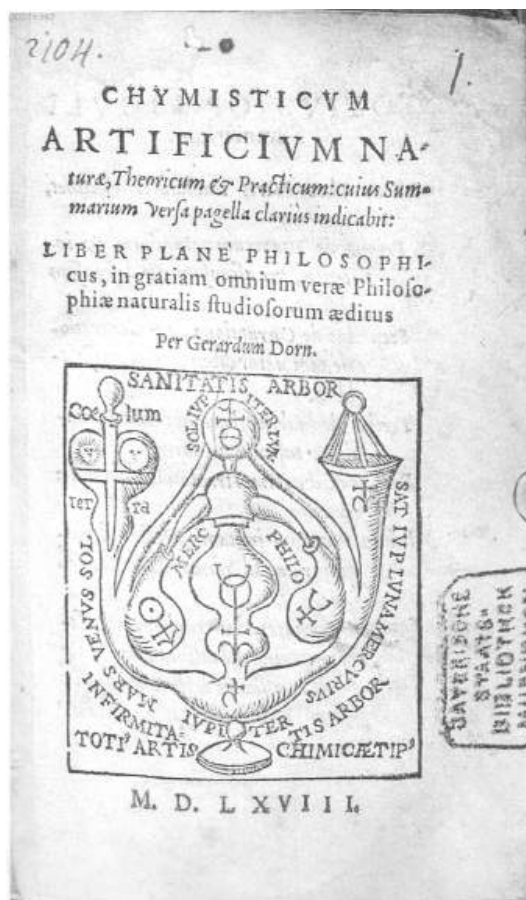 2104.
1.
CHYMISTICVM
ARTIFICIVM NA-
turæ, Theoricum & Practicum: cuius Sum-
marium versa pagella clariùs indicabit:
LIBER PLANE PHILOSOPHI-
cus, in gratiam omnium veræ Philoso-
phiæ naturalis studiosorum æditus
Per Gerardum Dorn.
SANITATIS ARBOR
Coe lum
ter ra
SOL IVP ITER
MERC PHILO
MARS VENVS SOL
SAT IVP LVNA MERCVRIVS
IVPI TER
INFIRMITA= TIS ARBOR
TOTIꝰ ARTIS CHIMICÆ TIPꝰ
M. D. LXVIII.
BAYERISCHE
STAATS-
BIBLIOTHEK